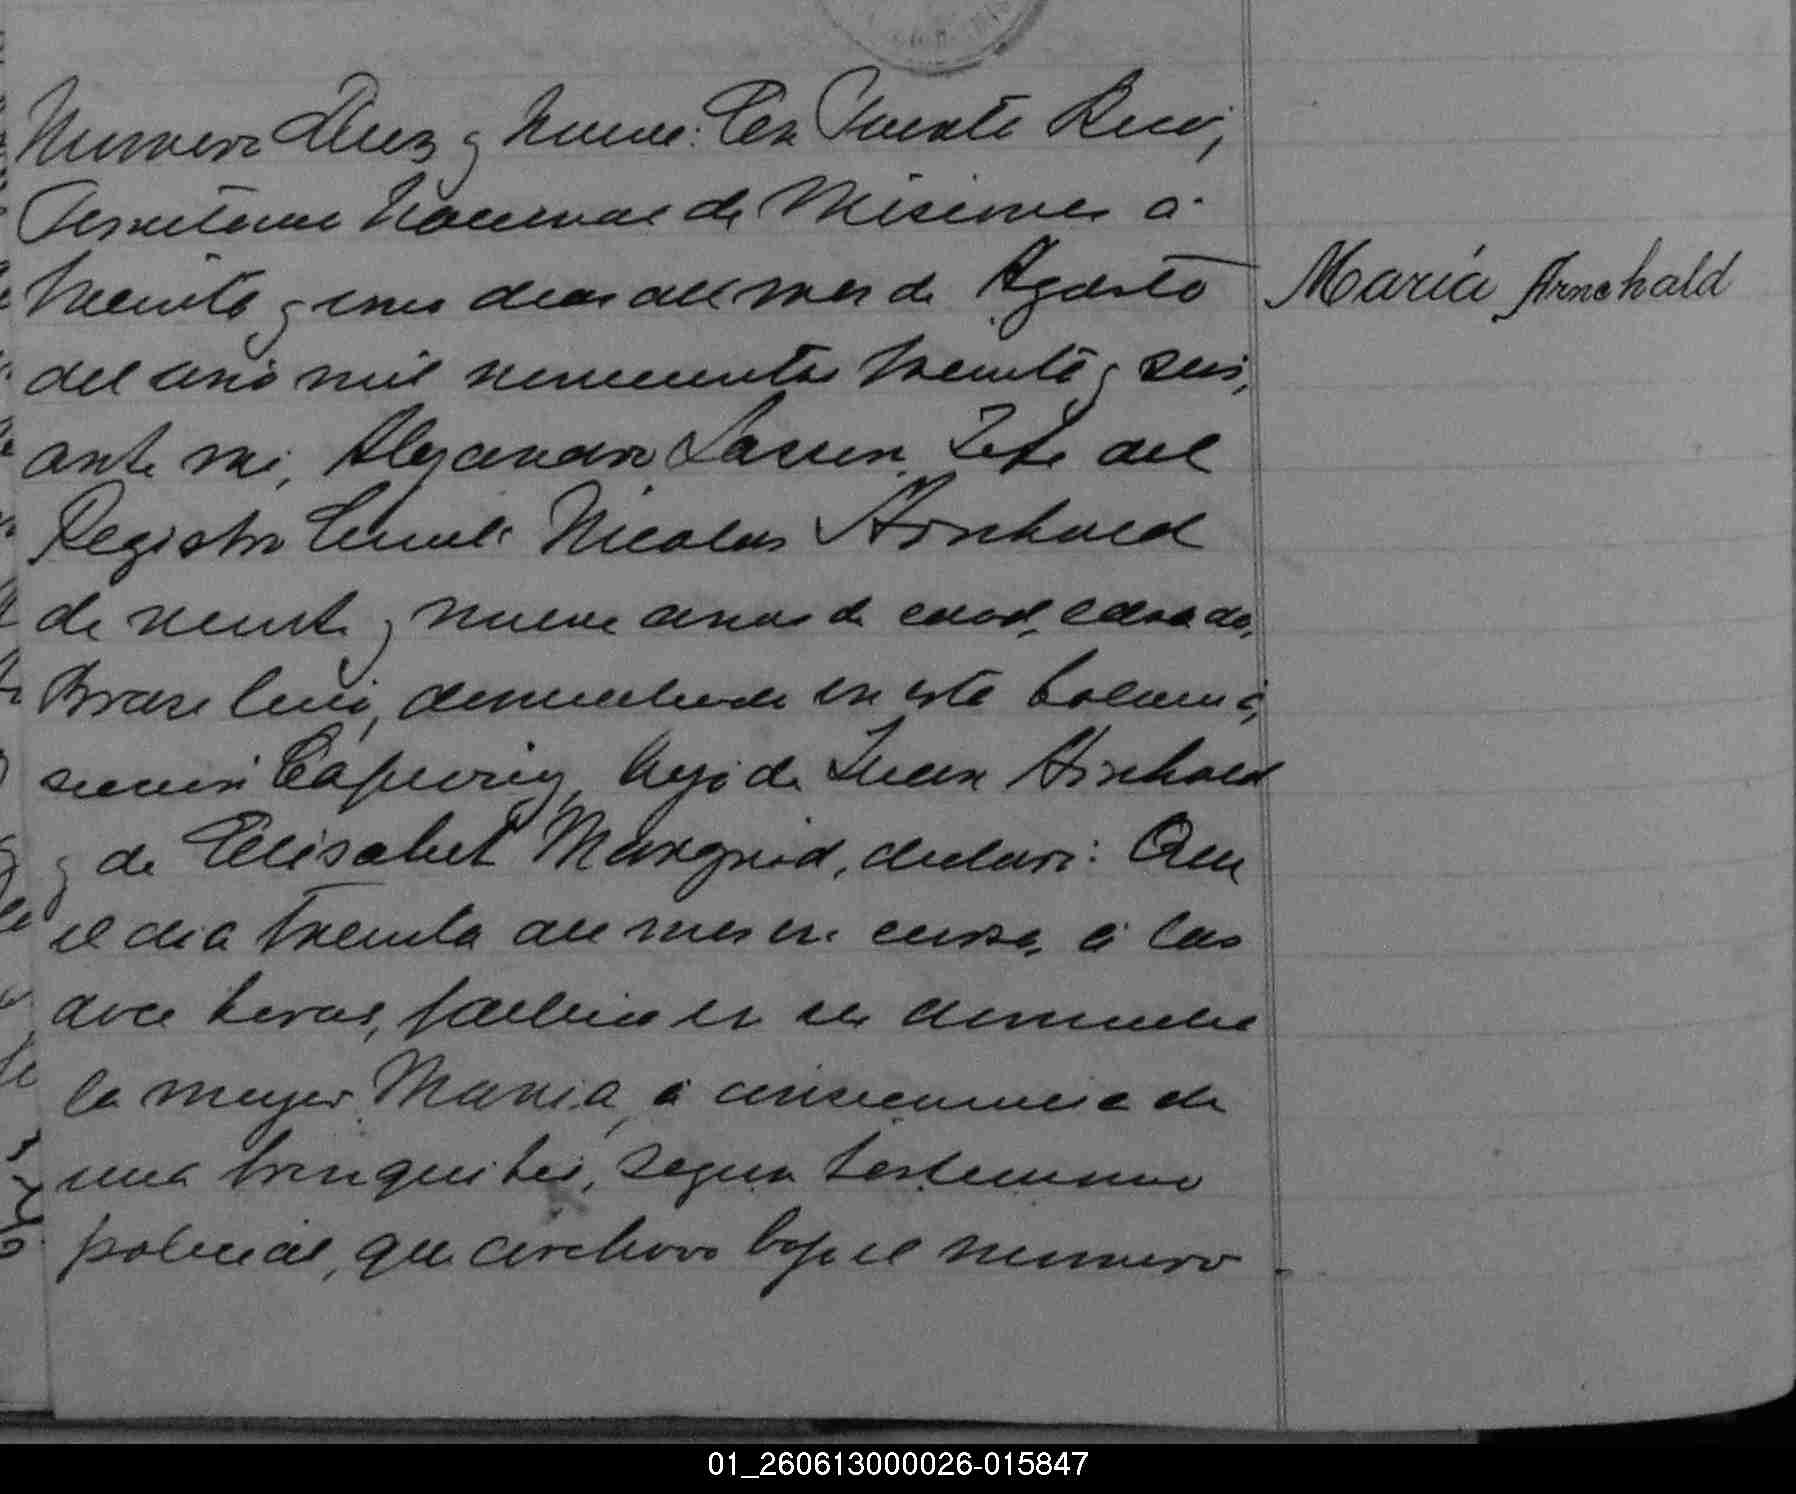 Numero Diez y nueve: En Puerto Rico,
Territorio Nacional de Misiones a
treinta y uno dias del mes de Agosto
del año mil novecientos treinta y seis,
ante mi, Alejandro Larsen, Jefe del
Registro Civil: Nicolas Arnhold
de veinte y nueve años de edad, casado,
Brasilero, domiciliado en esta colonia,
seccion Capiovy, hijo de Juan Arnhold
y de Elisabet declaró: Que
el dia treinta del mes en curso, a las
doce horas, falleció en su domicilio
la mujer Maria, a consecuencia de
una bronquitis, segun testimonio
policial, que archivo bajo el numero
María Arnehald
01_260613000026-015847